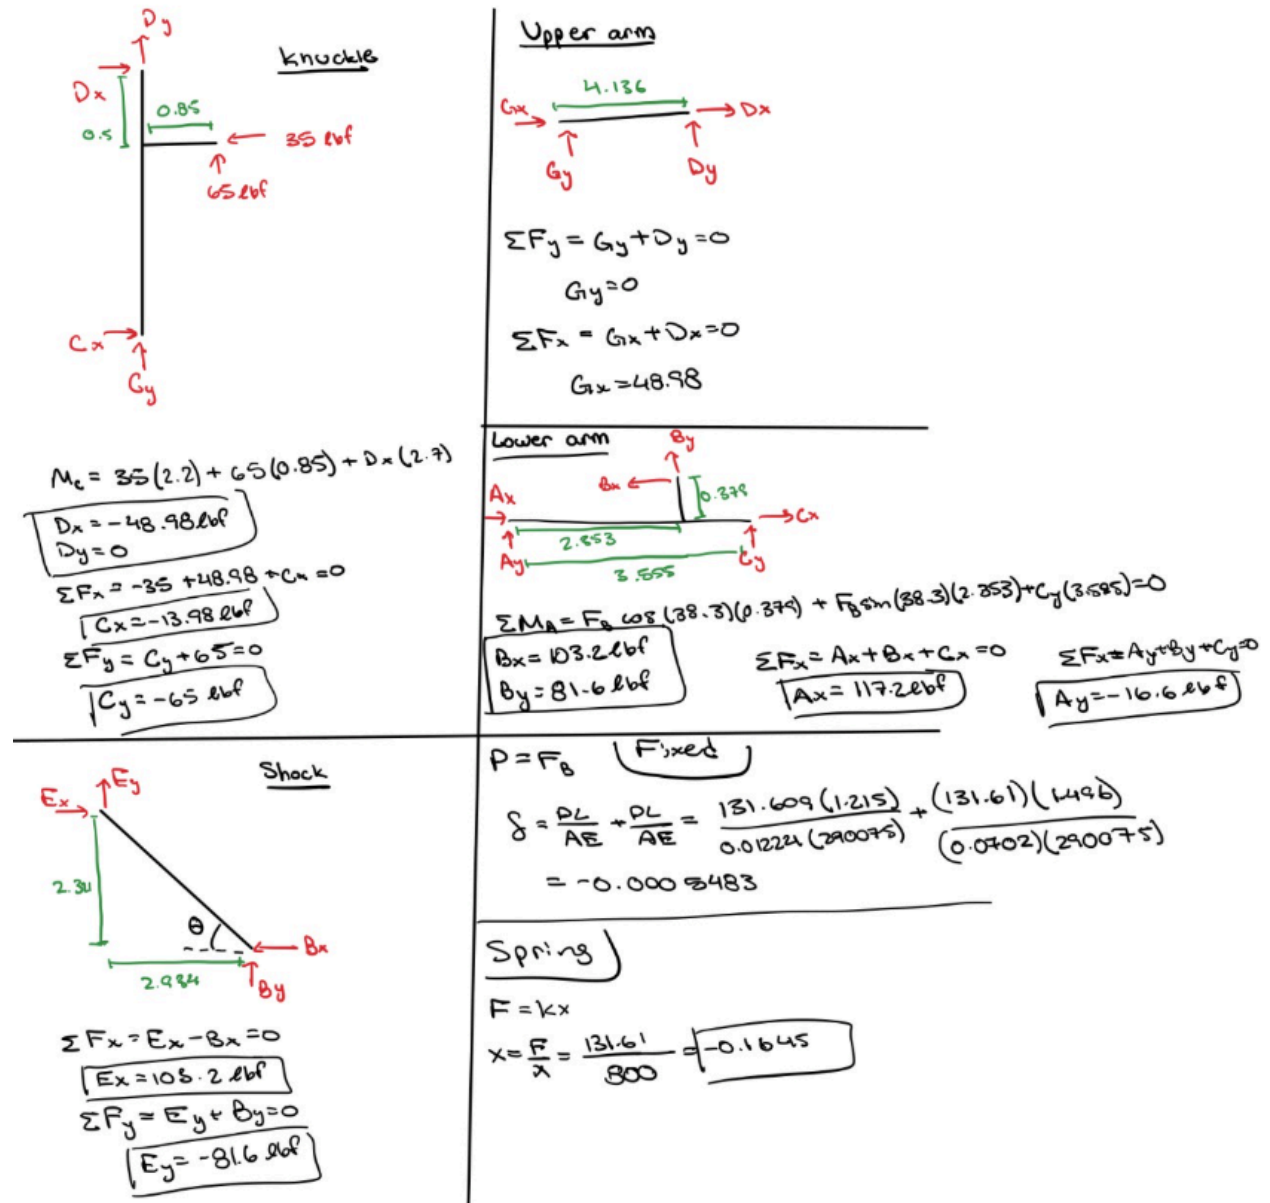 Knuckle
Dy
Dx
0.85
0.5
35 lbf
65 lbf
Cx
Cy
Mc = 35(2.2) + 65(0.85) + Dx(2.7)
Dx = -48.98 lbf
Dy = 0
ΣFx = -35 + 48.98 + Cx = 0
Cx = -13.98 lbf
ΣFy = Cy + 65 = 0
Cy = -65 lbf
Upper arm
4.136
Gx
Dx
Gy
Dy
ΣFy = Gy + Dy = 0
Gy = 0
ΣFx = Gx + Dx = 0
Gx = 48.98
Lower arm
By
Bx
0.379
Ax
Cx
2.353
Ay
Cy
3.555
ΣMA = FB cos(38.3)(0.379) + FB sin(38.3)(2.353) + Cy(3.585) = 0
Bx = 103.2 lbf
By = 81.6 lbf
ΣFx = Ax + Bx + Cx = 0
Ax = 117.2 lbf
ΣFx = Ay + By + Cy = 0
Ay = -16.6 lbf
Shock
Ey
Ex
2.34
θ
Bx
2.984
By
ΣFx = Ex - Bx = 0
Ex = 103.2 lbf
ΣFy = Ey + By = 0
Ey = -81.6 lbf
P = FB
Fixed
δ = PL/AE + PL/AE = 131.609(1.215)/0.01222(290075) + (131.61)(1.496)/(0.0702)(290075)
= -0.0005483
Spring
F = kx
x = F/x = 131.61/800 = -0.1645